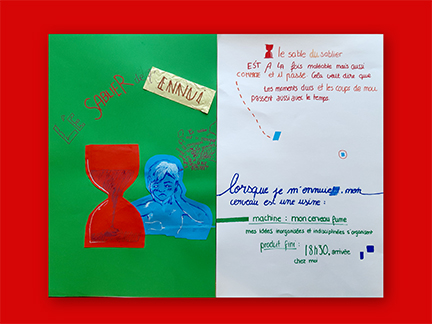 L'île SABLIER de
L'ENNUI
le sable du sablier
EST À la fois malléable mais aussi
COMPACTE et il passe. Cela veut dire que
les moments durs et les coups de mou
passent aussi avec le temps.
lorsque je m'ennuie, mon
cerveau est une usine :
machine : mon cerveau fume
mes idées inorganisées et indisciplinées s'organisent
produit fini : 18h30, arrivée
chez moi